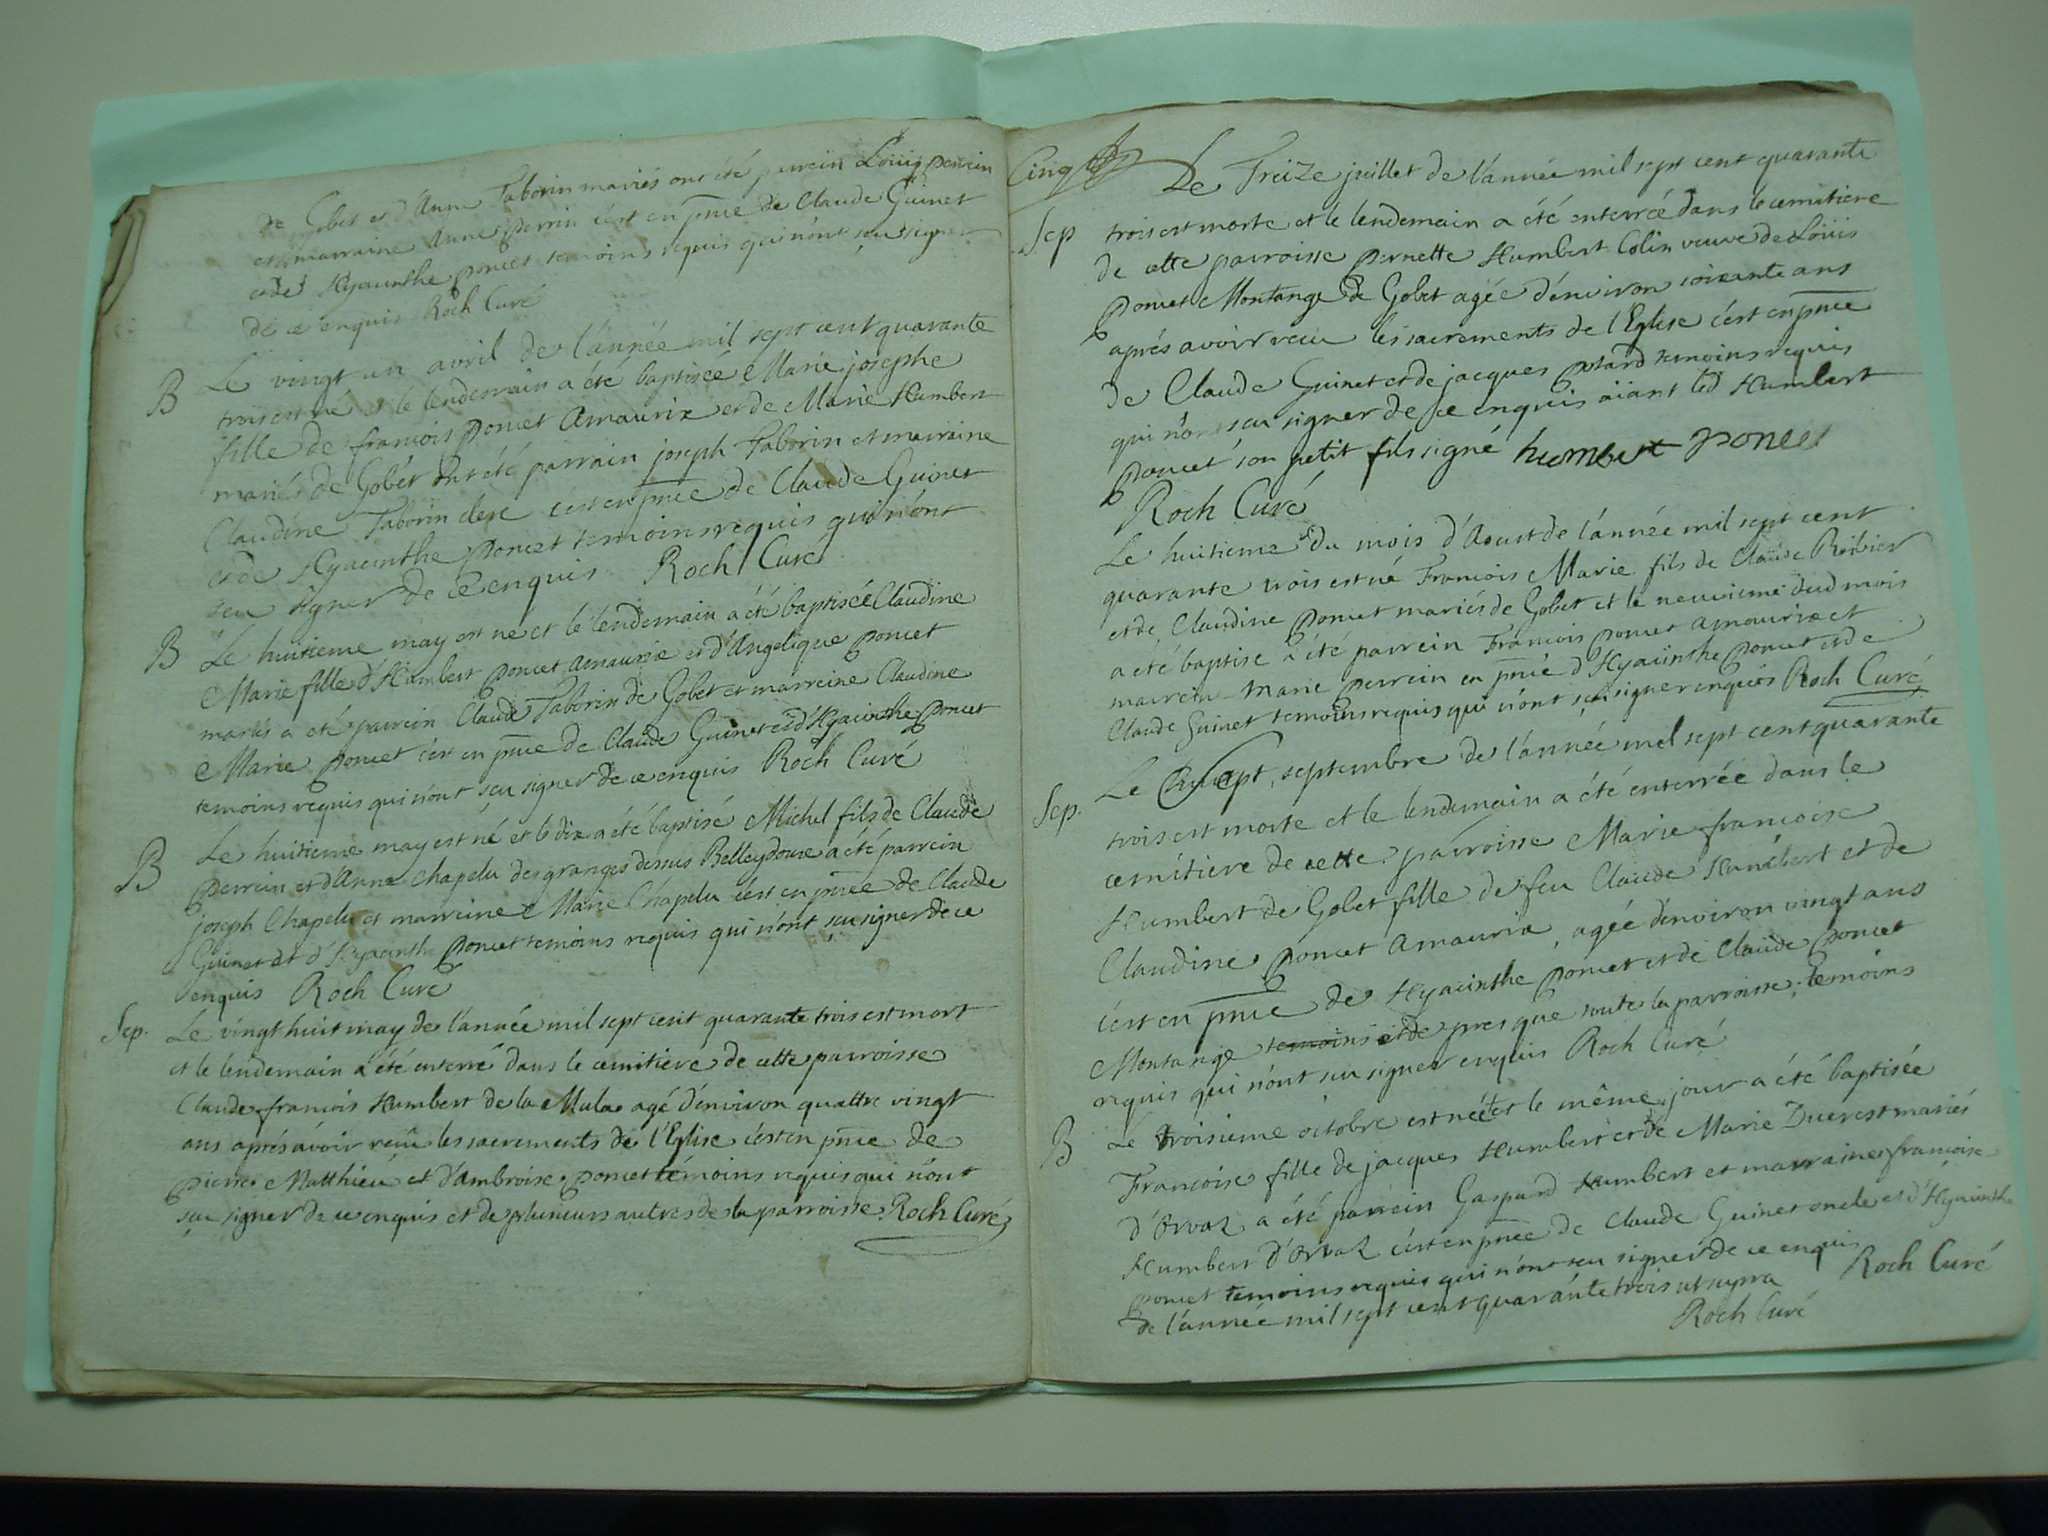 de Gobet et d'Anne Taborin mariés ont été parrein Loüis perrein
et marraine Anne perrin c'est en pnce de Claude Guinet
et de Hyacinthe poncet temoins requis qui n'ont sçu signer
de ce enquis Roch Curé
B Le vingt un avril de l'année mil sept cent quarante
trois est né et le lendemain a été baptisée Marie josephe
fille de francois poncet Amaurix et de Marie Humbert
mariés de Gobet ont été parrain joseph Taborin et marraine
Claudine Taborin c'est en pnce de Claude Guinet
et de Hyacinthe poncet temoins requis qui n'ont
sceu signer de ce enquis Roch Curé
B Le huitieme may est né et le lendemain a été baptisée Claudine
Marie fille d'Humbert poncet Amaurix et d'Angelique poncet
mariés a été parrein Claude Taborin de Gobet et marreine Claudine
Marie poncet c'est en pnce de Claude Guinet et d'Hyacinthe poncet
temoins requis qui n'ont sçu signer de ce enquis Roch Curé
B Le huitieme may est né et le dix a été baptisé Michel fils de Claude
perrein et d'Anne Chapelu des granges dessus Belleydoux a été parrein
joseph Chapelu et marreine Marie Chapelu c'est en pnce de Claude
Guinet et d'Hyacinthe poncet temoins requis qui n'ont sçu signer de ce
enquis Roch Curé
Sep. Le vingt huit may de l'année mil sept cent quarante trois est mort
et le lendemain a été enterré dans le cemitiere de cette parroisse
Claude francois Humbert de la Mula agé d'environ quattre vingt
ans aprés avoir receu les sacrements de l'Eglise c'est en pnce de
pierre Matthieu et d'Ambroise poncet témoins requis qui n'ont
sçu signer de ce enquis et de plusieurs autres de la parroisse Roch Curé
Cinq
Le Treize juillet de l'année mil sept cent quarante
Sep trois est morte et le lendemain a été enterrée dans le cemitiere
de cette parroisse pernette Humbert Colin veuve de Loüis
poncet Montange de Gobet agée d'environ soixante ans
aprés avoir receu les sacrements de l'Eglise c'est en pnce
de Claude Guinet et de jacques potard temoins requis
qui n'ont sçu signer de ce enquis aiant led Humbert
poncet son petit fils signé humbert poncet
Roch Curé
Le huitieme du mois d'Aoust de l'année mil sept cent
quarante trois est né Francois Marie fils de Claude Reibier
et de Claudine poncet mariés de Gobet et le neuvieme dud mois
a été baptise a été parrein Francois poncet Amaurix et
marrein Marie perrein en pnce d'Hyacinthe poncet et de
Claude Guinet temoins requis qui n'ont sçu signer enquis Roch Curé
Le sept septembre de l'année mil sept cent quarante
Sep. trois est morte et le lendemain a été enterrée dans le
cemitiere de cette parroisse Marie francoise
Humbert de Gobet fille de feu Claude Humbert et de
Claudine poncet Amaurix, agée d'environ vingt ans
c'est en pnce de Hyacinthe poncet et de Claude poncet
Montange temoins et de presque toute la parroisse, temoins
requis qui n'ont sçu signer enquis Roch Curé
B Le troisieme octobre est née et le même jour a été baptisée
Francoise fille de jacques Humbert et de Marie Ducrest mariés
d'Orvaz a été parrein Gaspard Humbert et marraine francoise
Humbert d'Orvaz c'est en pnce de Claude Guinet oncle et d'Hyacinthe
poncet temoins requis qui n'ont sçu signer de ce enquis
de l'année mil sept cent quarante trois ut supra Roch Curé
Roch Curé